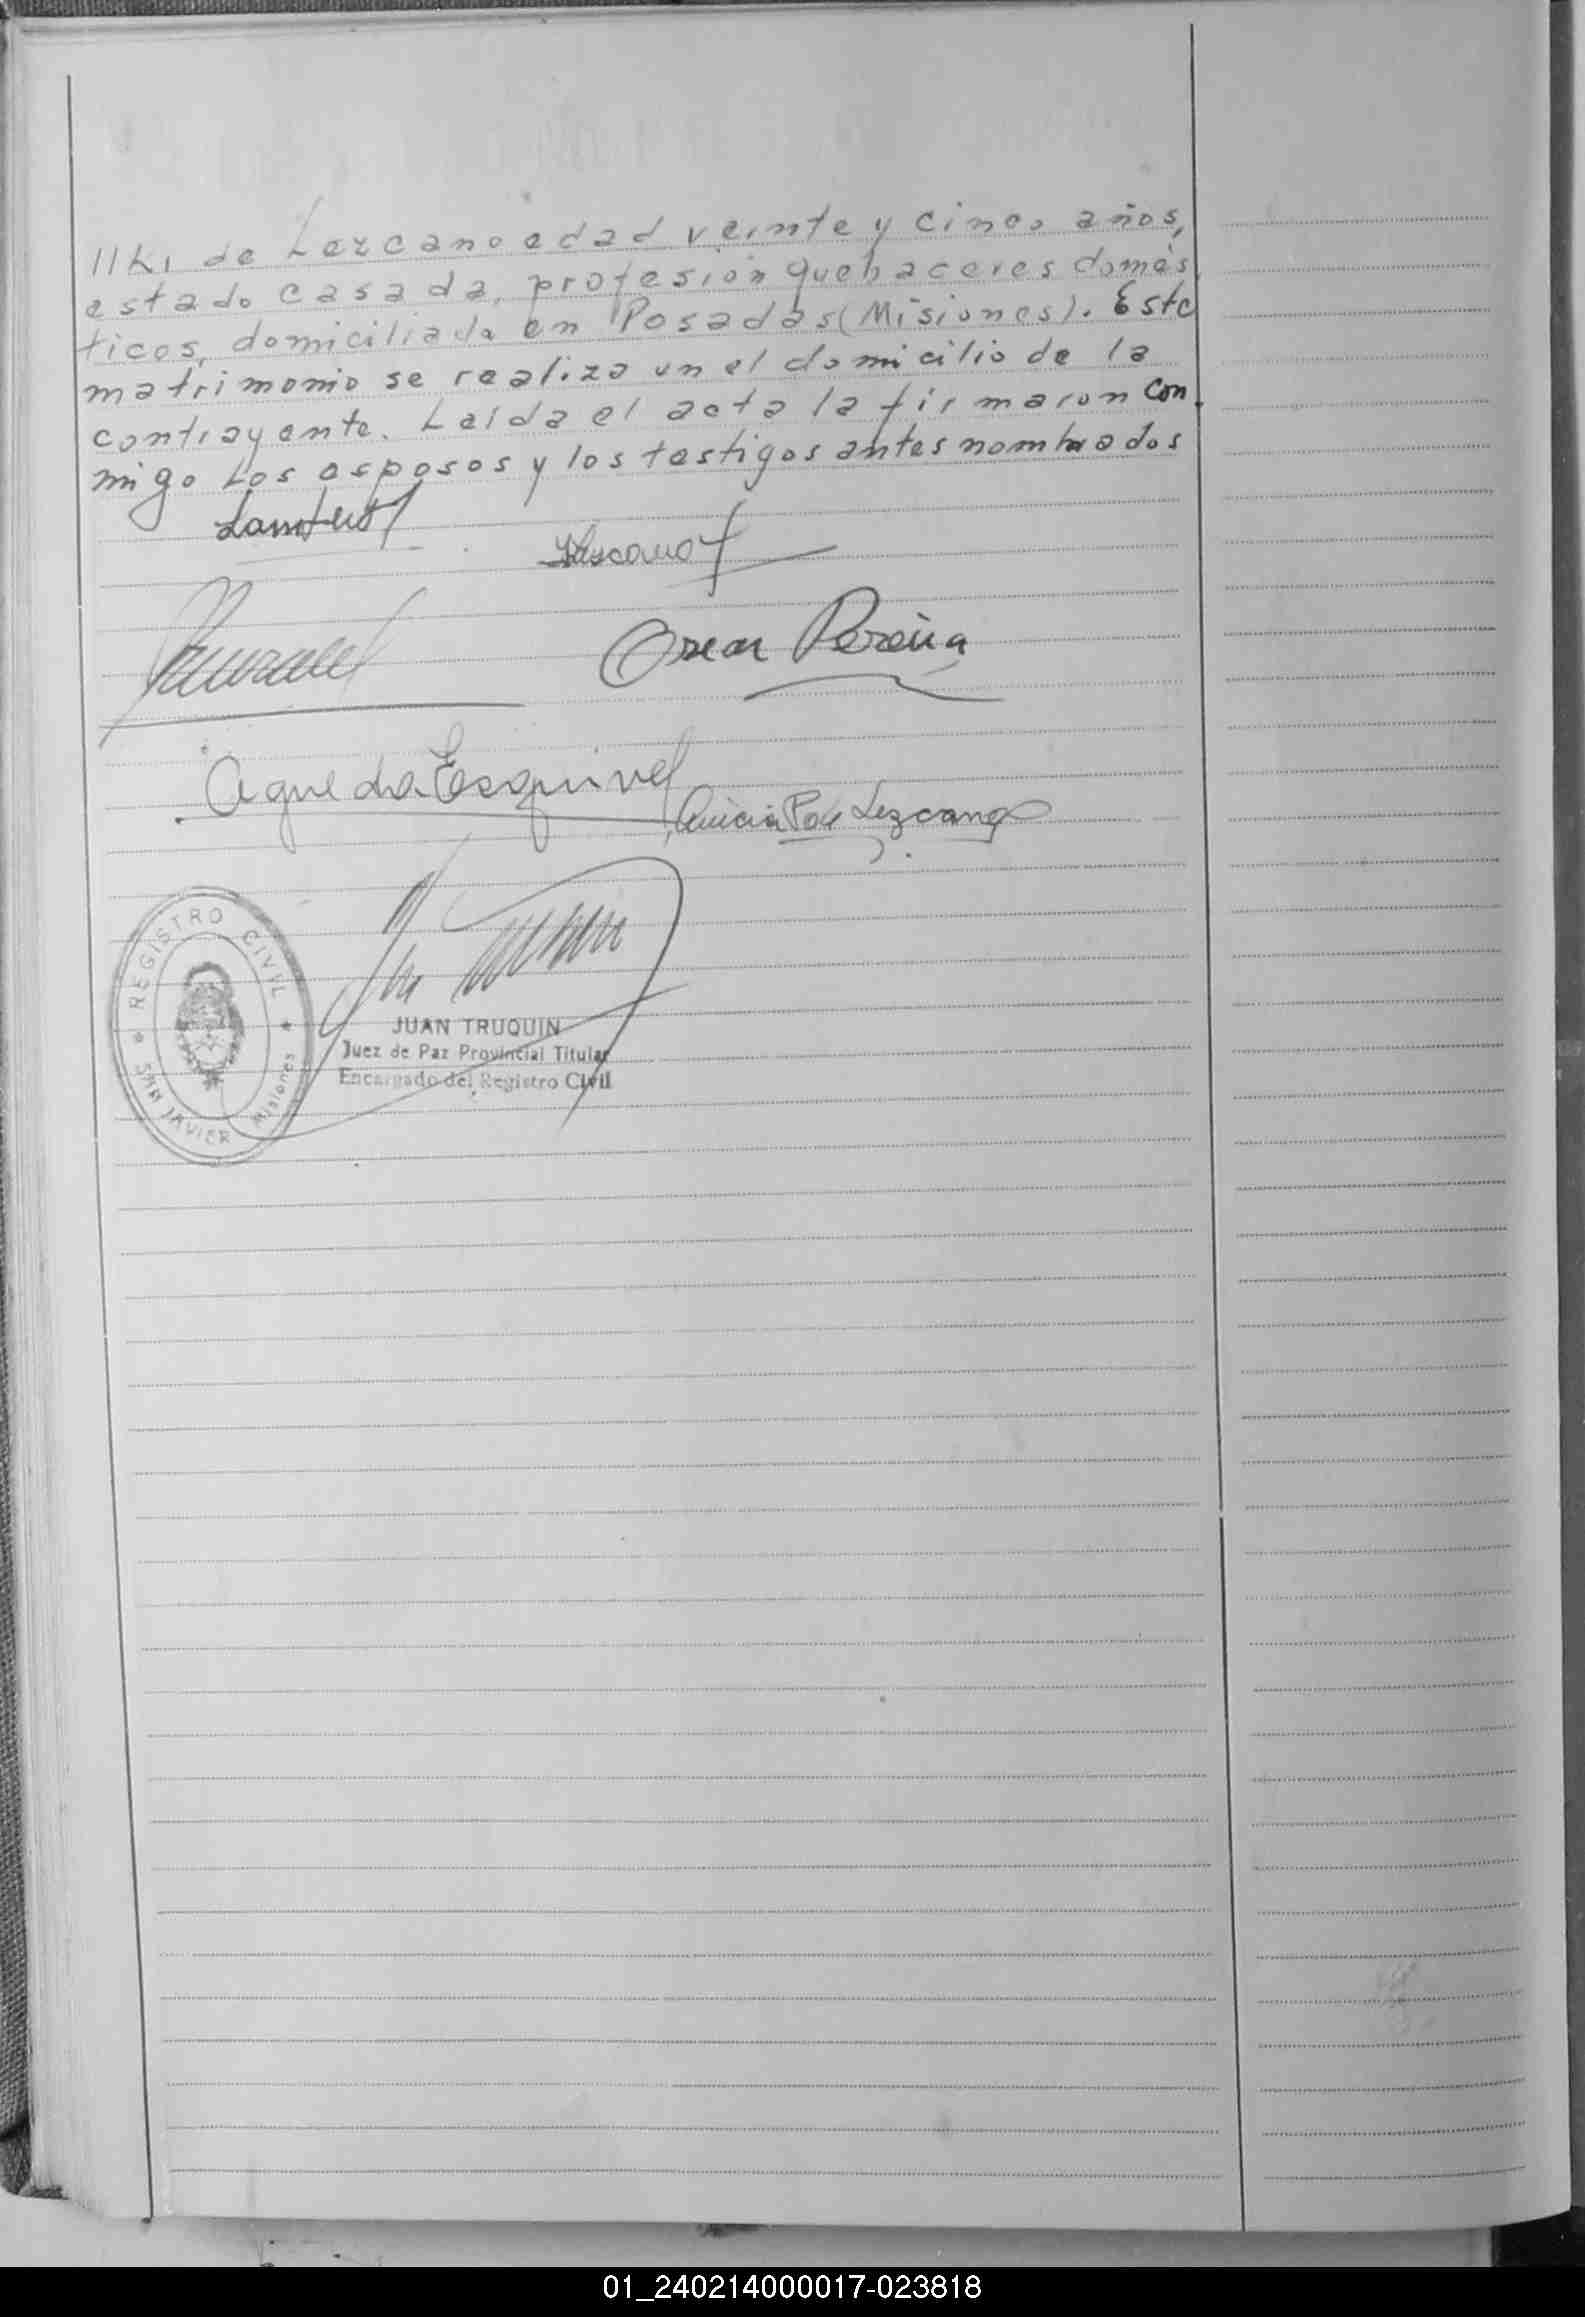 llki de Lezcano edad veinte y cinco años,
estado casada, profesión quehaceres domés
ticos, domiciliada en Posadas (Misiones). Este
matrimonio se realiza en el domicilio de la
contrayente. Leida el acta la firmaron con
migo Los esposos y los testigos antes nombrados
Oscar Pereira
Agueda Esquivel
Anicia P de Lezcano
REGISTRO CIVIL
SAN JAVIER Misiones
JUAN TRUQUIN
Juez de Paz Provincial Titular
Encargado del Registro Civil
01_240214000017-023818